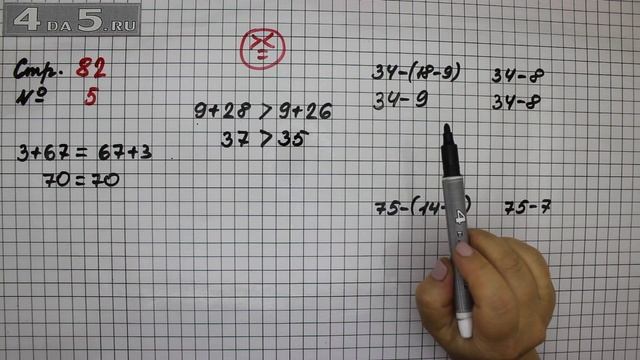 4DA5.RU
Стр. 82
№ 5
3+67 = 67+3
70 = 70
X
=
9+28 > 9+26
37 > 35
34-(18-9) 34-8
34-9 34-8
75-(14- ) 75-7
4